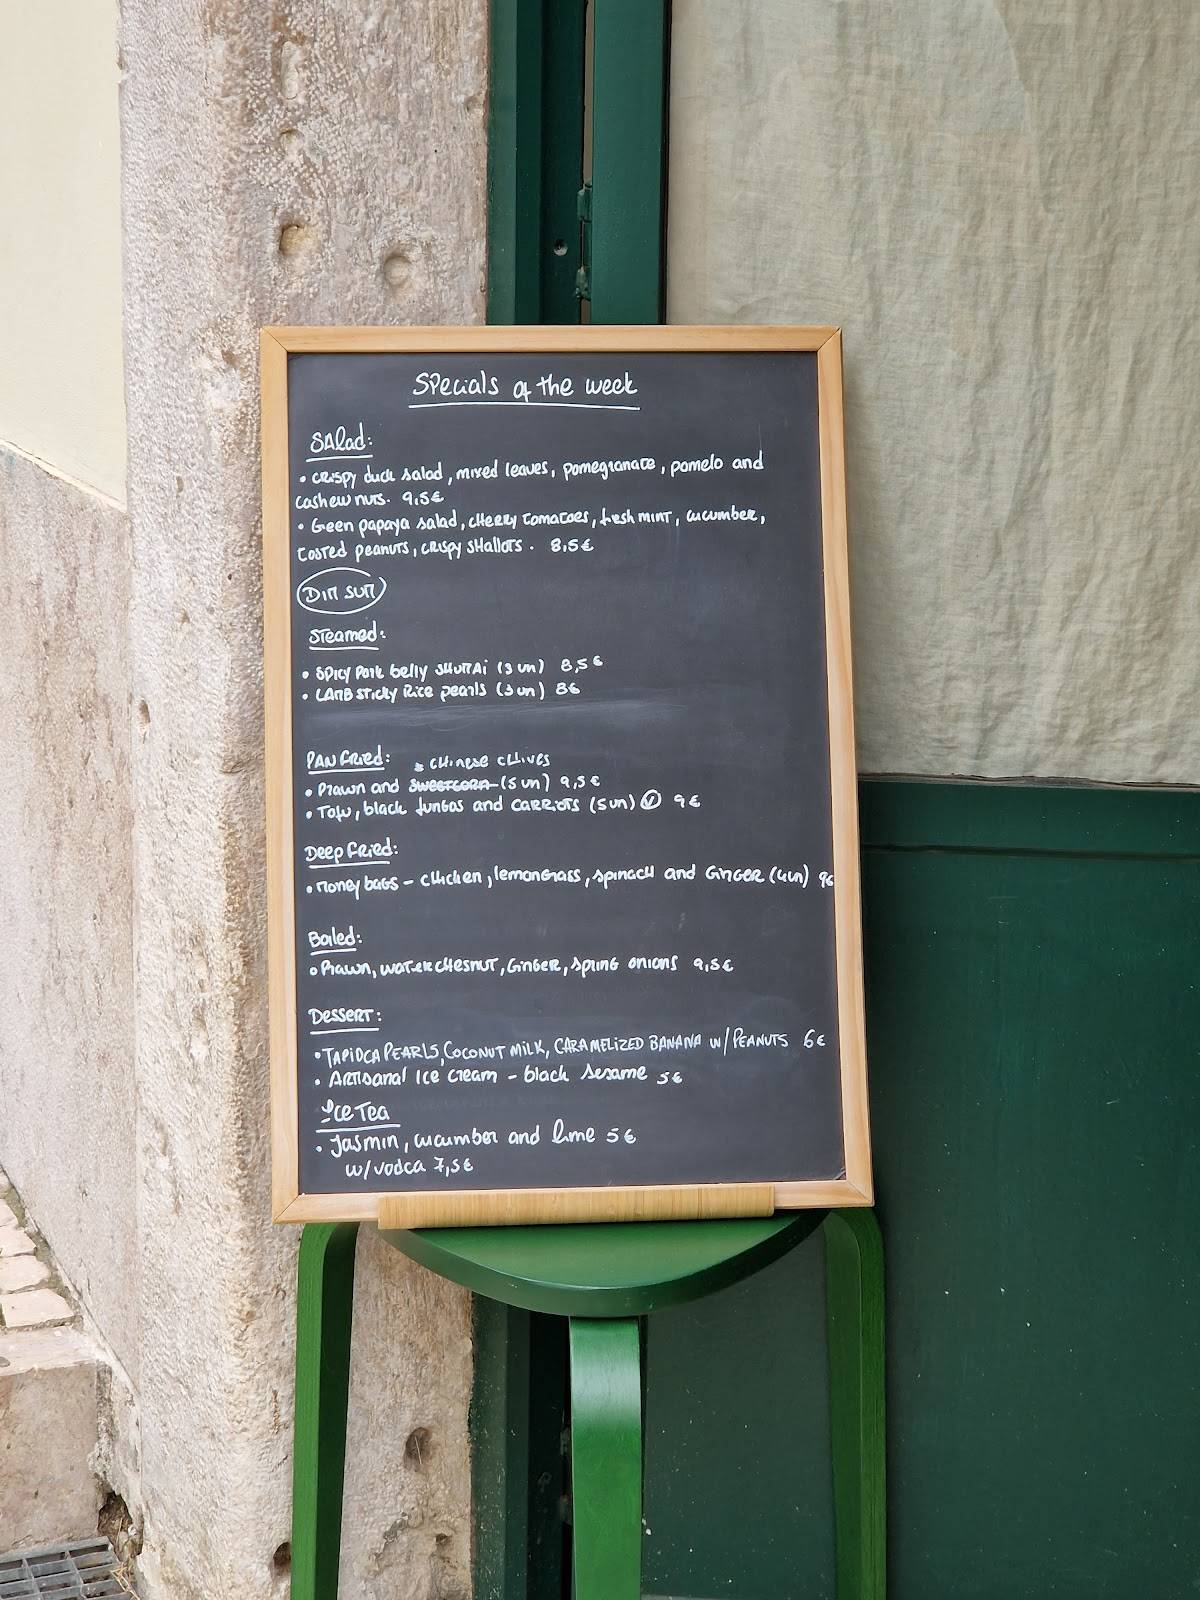 Specials of the week
Salad:
• crispy duck salad, mixed leaves, pomegranate, pomelo and
cashew nuts. 9,5€
• Geen papaya salad, cherry tomatoes, fresh mint, cucumber,
tosted peanuts, crispy shallots. 8,5€
Dim sum
Steamed:
• Spicy pork belly shumai (3 un) 8,5€
• Lamb sticky rice pearls (3 un) 8€
Pan fried: Chinese chives
• Prawn and sweetcorn (5 un) 9,5€
• Tofu, black fungos and carrots (5un) V 9€
Deep fried:
• Money bags - chicken, lemongrass, spinach and ginger (4un) 9€
Boiled:
• Prawn, water chesnut, ginger, spring onions 9,5€
Dessert:
• Tapioca pearls, coconut milk, caramelized banana w/ peanuts 6€
• Artisanal ice cream - black sesame 5€
Ice Tea
• Jasmin, cucumber and lime 5€
w/vodca 7,5€